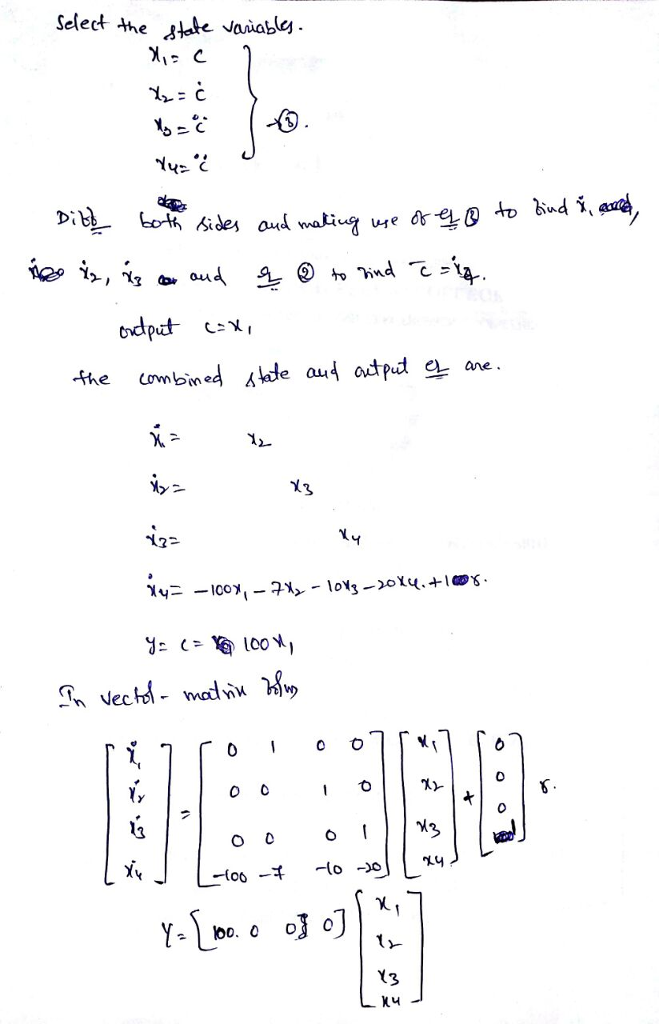 Select the state variables.
x₁ = c
x₂ = ċ
x₃ = c̈
x₄ = c⃛
} → ③.
Diff both sides and making use of eq ③ to find ẋ₁,
ẋ₂, ẋ₃ and eq ② to find = ẋ₄.
output c = x₁
the combined state and output eq are.
ẋ₁ = x₂
ẋ₂ = x₃
ẋ₃ = x₄
ẋ₄ = -100x₁ - 7x₂ - 10x₃ - 20x₄. + 1 r.
y = c = 100 x₁
In vector - matrix form
[ẋ₁ ẋ₂ ẋ₃ ẋ₄] = [0 1 0 0
0 0 1 0
0 0 0 1
-100 -7 -10 -20] [x₁ x₂ x₃ x₄] + [0 0 0] r.
Y = [100. 0 0 0] [x₁
x₂
x₃
x₄]